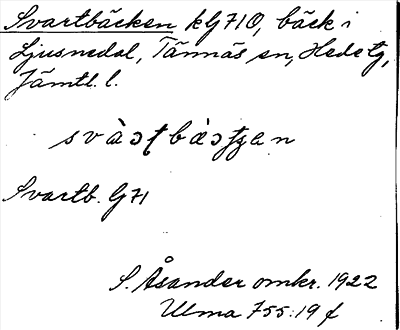 Svartbäcken kG710, bäck i
Ljusnedal, Tännäs sn, Hede tg,
Jämtl. l.
Svartb. G71
S. Åsander omkr. 1922
Ulma 755:19 f